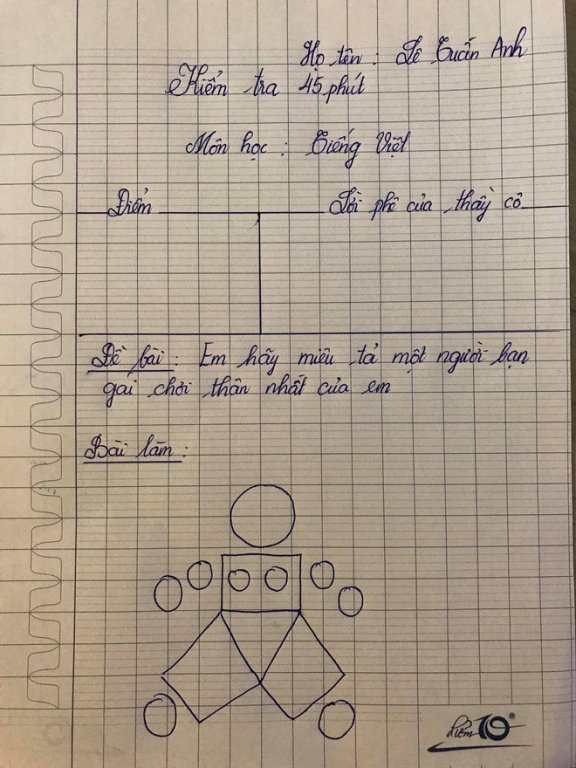 Họ tên : Lê Tuấn Anh
Kiểm tra 45 phút
Môn học : Tiếng Việt
Điểm
Lời phê của thầy cô
Đề bài : Em hãy miêu tả một người bạn
gai chơi thân nhất của em
Bài làm :
Điểm 10